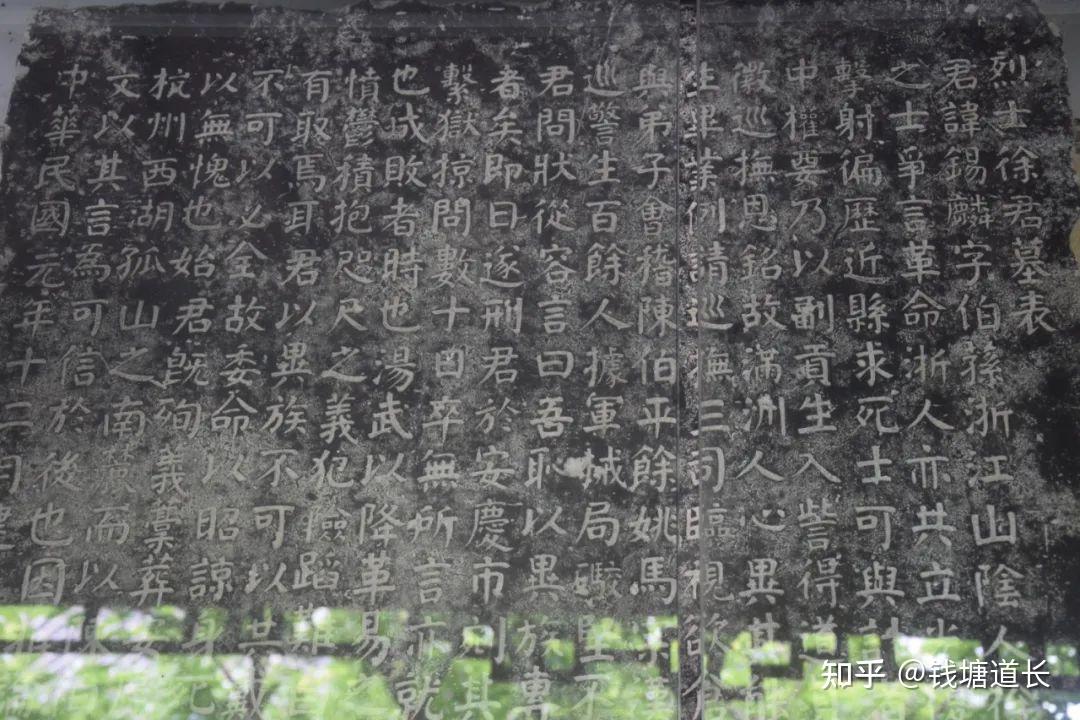 烈士徐君墓表
君諱錫麟字伯蓀浙江山陰人
之士爭言革命浙人亦共立光
擊射徧歷近縣求死士可與計
中權要乃以副貢生入訾得道
徽巡撫恩銘故滿洲人心異其能
生畢業例請巡撫三司臨視欲會
與弟子會稽陳伯平餘姚馬宗漢
巡警生百餘人據軍械局
君問狀從容言曰吾恥以異族專
者矣即日遂刑君於安慶市則其
繫獄掠問數十日卒無所言亦就
也成敗者時也湯武以降革易之
情鬱積抱咫尺之義犯險蹈難
有取焉耳君以異族不可以共戴
不可以必全故委命以昭諒
以無愧也始君既殉義槀葬安
杭州西湖孤山之南
文以其言為可信於後也因
中華民國元年十二月建
知乎 @钱塘道长